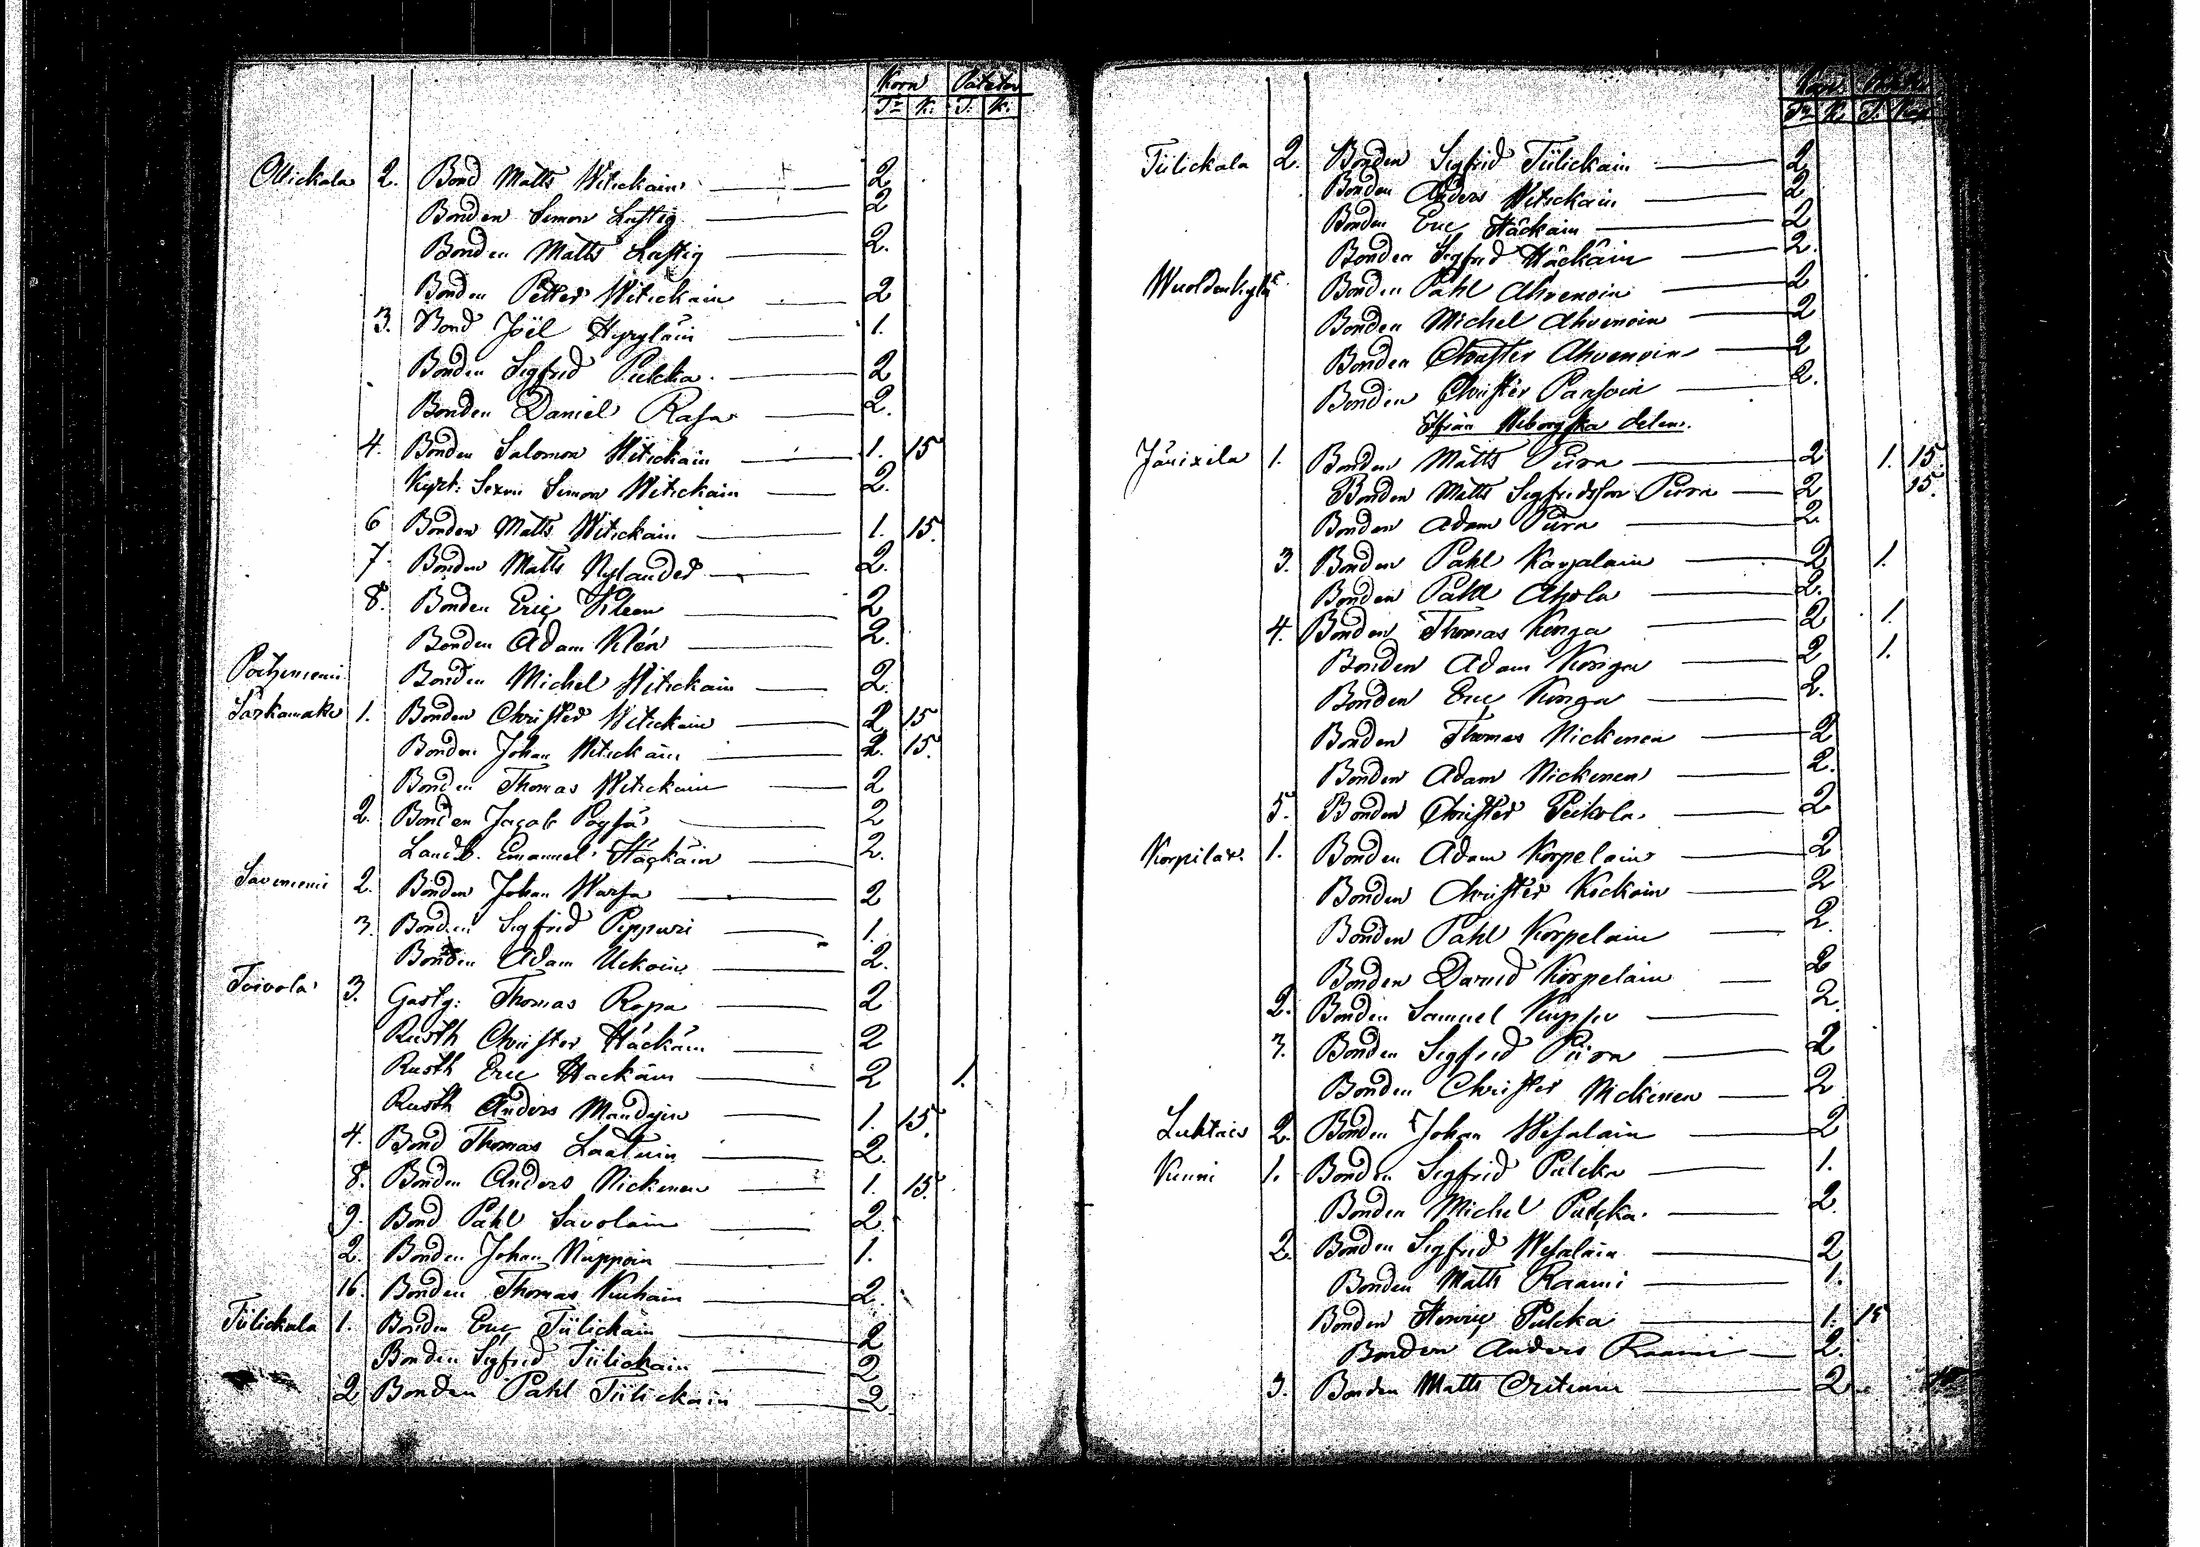 Korn Pateter
Tr K. T. K.
Ollickala 2. Bond Matts Witickain 2
Bonden Simon Lustig 2
Bonden Matts Lustig 2.
Bonden Petter Witickain 2
3. Bond Joël Hyryläin 1.
Bonden Sigfrid Pulcka 2
Bonden Daniel Rasa 2.
4. Bonden Salomon Witickain 1. 15
Kyrk: Sexm Simon Witickain 2.
6 Bonden Matts Witickain 1. 15.
7. Bonden Matts Nylander 2.
8. Bonden Eric Kleen 2
Bonden Adam Klén 2.
Bonden Michel Witickain 2.
Särkamäki 1. Bonden Christer Witickain 2 15
Bonden Johan Witickain 2. 15.
Bonden Thomas Witickain 2
2. Bonden Jacob 2
Landb. Emanuel Häckäin 2.
Savinemi 2. Bonden Johan Warsa 2
3. Bonden Sigfrid Pippuri 1.
Bonden Adam Uckoin 2.
Toivola 3. Gästg: Thomas Ropa 2
Rusth Christer Häckäin 2
Rusth Eric Hackäin 2 1.
Rusth Anders Mandyin 1. 15.
4. Bond Thomas Laaluin 2.
8. Bonden Anders Nickenen 1. 15.
9. Bond Pahl Savolain 2.
2. Bonden Johan Nuppoin 1.
16. Bonden Thomas Kuhain 2.
Tiilickala 1. Bonden Eric Tiilickain 2
Bonden Sigfrid Tiilickain 2
2 Bonden Pahl Tiilickain 2.
Korn
Tr K. T. K.
Tiilickala 2. Bonden Sigfrid Tiilickain 2
Bonden Anders Witickain 2
Bonden Eric Häckäin 2
Bonden Sigfrid Häckäin 2.
Wuoldenkylä Bonden Pahl Ahvenoin 2
Bonden Michel Ahvenoin 2
Bonden Christer Ahvenoin 2
Bonden Christer Pansoin 2.
Ifrån Wiborgska delen.
Järixila 1. Bonden Matts Pura 2 1. 15
Bonden Matts Sigfridsson Pura 2 15.
Bonden Adam Pura 2
3. Bonden Pahl Karjalain 2 1.
Bonden Pahl Ahola 2.
4. Bonden Thomas Konga 2 1.
Bonden Adam Konga 2 1.
Bonden Eric Konga 2.
Bonden Thomas Nickenen 2
Bonden Adam Nickenen 2.
5. Bonden Christer Peikola 2
Korpilax. 1. Bonden Adam Korpelain 2
Bonden Christer Kockoin 2
Bonden Pahl Korpelain 2.
Bonden David Korpelain 2
2. Bonden Samuel 2.
3. Bonden Sigfrid Pura 2
Bonden Christer Nickenen 2
Luhtais 2. Bonden Johan Wesalain 2
Kunni 1. Bonden Sigfrid Pulcka 1.
Bonden Michel Pulcka. 2
2. Bonden Sigfrid Wesalain 2
Bonden Matts Raami 1.
Bonden Henric Pulcka 1. 15
Bonden Anders Raami 2.
3. Bonden Matts 2